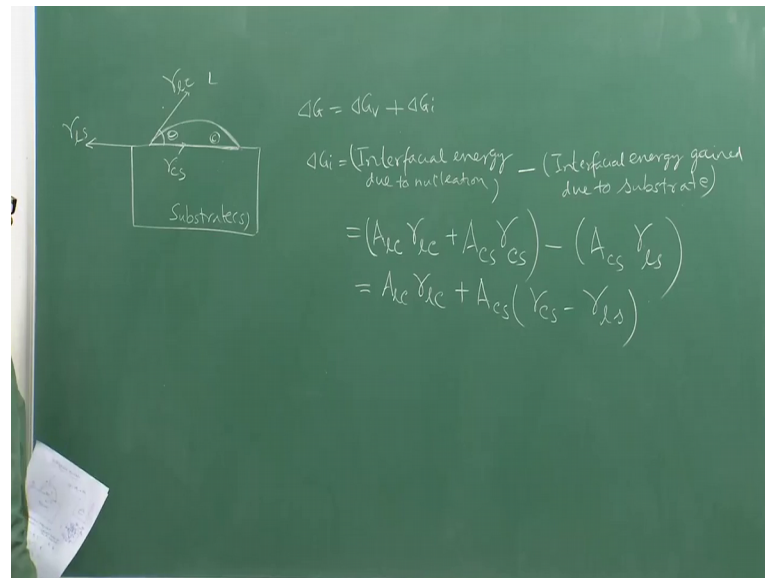 γlc L
γLS
θ c
γcs
Substrate(s)
ΔG = ΔGv + ΔGi
ΔGi = (Interfacial energy due to nucleation) − (Interfacial energy gained due to substrate)
= (Alc γlc + Acs γcs) − (Acs γls)
= Alc γlc + Acs (γcs − γls)